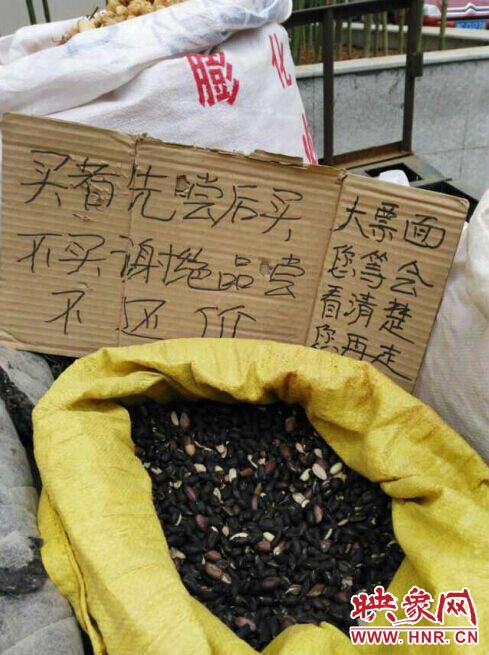 膨化
买者先尝后买
不买谢绝品尝
不还价
大票面
您等会
看清楚
您再走
映象网
WWW.HNR.CN